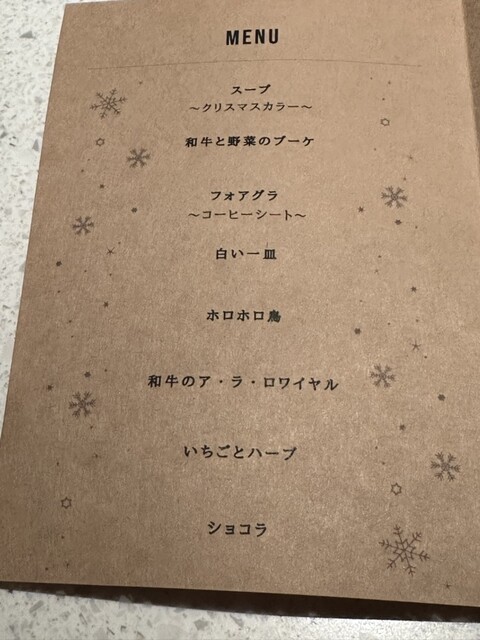 MENU
スープ
～クリスマスカラー～
和牛と野菜のブーケ
フォアグラ
～コーヒーシート～
白い一皿
ホロホロ鳥
和牛のア・ラ・ロワイヤル
いちごとハーブ
ショコラ